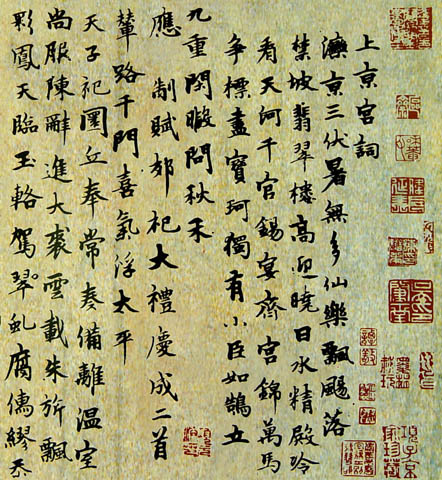 上京宫詞
灤京三伏暑無多仙樂飄颺落
禁坡翡翠樓高迎曉日水精殿冷
看天河千官錫宴齊宫錦萬馬
争標盡寳珂獨有小臣如鵠立
九重閑暇問秋禾
應 制賦郊祀大禮慶成二首
輦路千門喜氣浮太平
天子祀圜丘奉常奏備離温室
尚服陳辭進大裘雲載朱旂飄
彩鳳天臨玉輅駕翠虬腐儒繆忝
項子京家珍藏